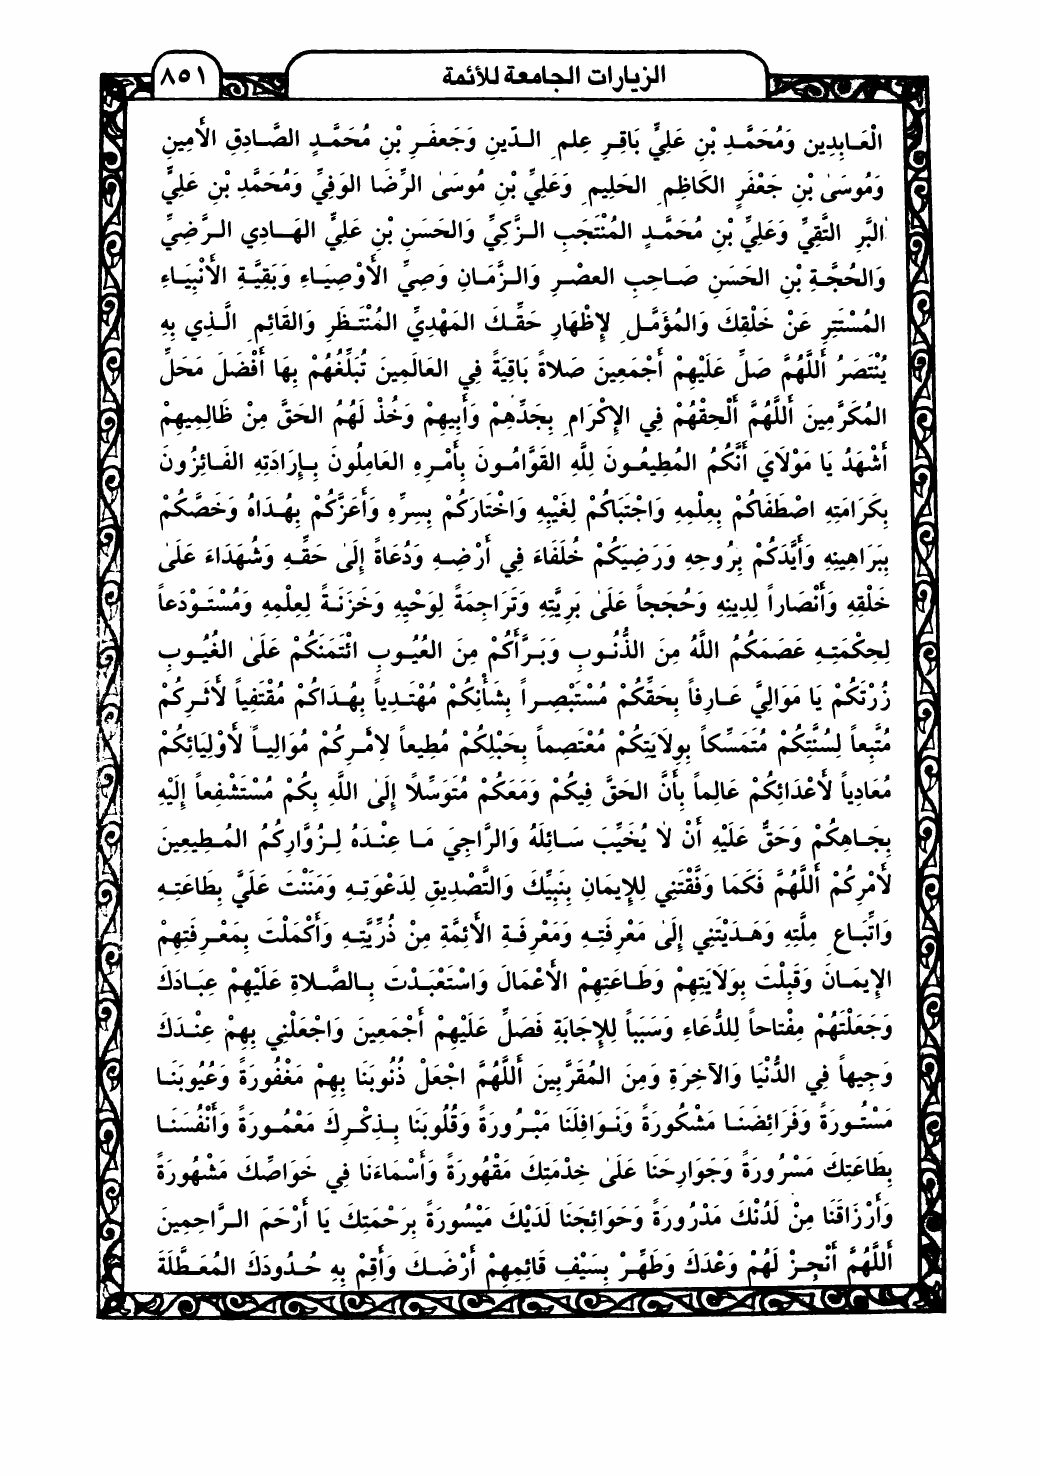 الزيارات الجامعة للأئمة
٨٥١
الْعَابِدِين وَمُحَمَّدِ بْنِ عَلِيٍّ بَاقِرِ عِلمِ الدّينِ وَجَعفَرِ بْنِ مُحَمَّدٍ الصَّادِقِ الأَمِينِ
وَمُوسَىٰ بْنِ جَعْفَرٍ الكَاظِمِ الحَلِيمِ وَعَلِيِّ بْنِ مُوسَىٰ الرِّضَا الوَفِيِّ وَمُحَمَّدِ بْنِ عَلِيٍّ
البَّرِ التَّقِيِّ وَعَلِيِّ بْنِ مُحَمَّدٍ المُنْتَجَبِ الزَّكِيِّ وَالحَسَنِ بْنِ عَلِيٍّ الهَادِي الرَّضِيِّ
وَالحُجَّةِ بْنِ الحَسَنِ صَاحِبِ العصْرِ وَالزَّمَانِ وَصِيِّ الأَوْصِيَاءِ وَبَقِيَّةِ الأَنْبِيَاءِ
المُسْتَتِرِ عَنْ خَلْقِكَ وَالمُؤَمَّلِ لإِظْهَارِ حَقِّكَ المَهْدِيِّ المُنْتَظَرِ وَالقَائِمِ الَّذِي بِهِ
يُنْتَصَرُ أَللَّهُمَّ صَلِّ عَلَيْهِمْ أَجْمَعِينَ صَلاَةً بَاقِيَةً فِي العَالَمِينَ تُبَلِّغُهُمْ بِهَا أَفْضَلَ مَحَلِّ
المُكَرَّمِينَ أَللَّهُمَّ أَلْحِقْهُمْ فِي الإِكْرَامِ بِجَدِّهِمْ وَأَبِيهِمْ وَخُذْ لَهُمُ الحَقَّ مِنْ ظَالِمِيهِمْ
أَشْهَدُ يَا مَوْلاَيَ أَنَّكُمُ المُطِيعُونَ لِلَّهِ القَوَّامُونَ بِأَمْرِهِ العَامِلُونَ بِإِرَادَتِهِ الفَائِزُونَ
بِكَرَامَتِهِ اصْطَفَاكُمْ بِعِلْمِهِ وَاجْتَبَاكُمْ لِغَيْبِهِ وَاخْتَارَكُمْ بِسِرِّهِ وَأَعَزَّكُمْ بِهُدَاهُ وَخَصَّكُمْ
بِبَرَاهِينِهِ وَأَيَّدَكُمْ بِرُوحِهِ وَرَضِيَكُمْ خُلَفَاءَ فِي أَرْضِهِ وَدُعَاةً إِلَىٰ حَقِّهِ وَشُهَدَاءَ عَلَىٰ
خَلْقِهِ وَأَنْصَاراً لِدِينِهِ وَحُجَجاً عَلَىٰ بَرِيَّتِهِ وَتَرَاجِمَةً لِوَحْيِهِ وَخَزَنَةً لِعِلْمِهِ وَمُسْتَوْدَعاً
لِحِكْمَتِهِ عَصَمَكُمُ اللَّهُ مِنَ الذُّنُوبِ وَبَرَّأَكُمْ مِنَ العُيُوبِ ائْتَمَنَكُمْ عَلَىٰ الغُيُوبِ
زُرْتُكُمْ يَا مَوَالِيَّ عَارِفاً بِحَقِّكُمْ مُسْتَبْصِراً بِشَأْنِكُمْ مُهْتَدِياً بِهُدَاكُمْ مُقْتَفِياً لأَثَرِكُمْ
مُتَّبِعاً لِسُنَّتِكُمْ مُتَمَسِّكاً بِوِلاَيَتِكُمْ مُعْتَصِماً بِحَبْلِكُمْ مُطِيعاً لأَمْرِكُمْ مُوَالِياً لأَوْلِيَائِكُمْ
مُعَادِياً لأَعْدَائِكُمْ عَالِماً بِأَنَّ الحَقَّ فِيكُمْ وَمَعَكُمْ مُتَوَسِّلاً إِلَىٰ اللَّهِ بِكُمْ مُسْتَشْفِعاً إِلَيْهِ
بِجَاهِكُمْ وَحَقٌّ عَلَيْهِ أَنْ لاَ يُخَيِّبَ سَائِلَهُ وَالرَّاجِيَ مَا عِنْدَهُ لِزُوَّارِكُمُ المُطِيعِينَ
لأَمْرِكُمْ أَللَّهُمَّ فَكَمَا وَفَّقْتَنِي لِلإِيمَانِ بِنَبِيِّكَ وَالتَّصْدِيقِ لِدَعْوَتِهِ وَمَنَنْتَ عَلَيَّ بِطَاعَتِهِ
وَاتِّبَاعِ مِلَّتِهِ وَهَدَيْتَنِي إِلَىٰ مَعْرِفَتِهِ وَمَعْرِفَةِ الأَئِمَّةِ مِنْ ذُرِّيَّتِهِ وَأَكْمَلْتَ بِمَعْرِفَتِهِمْ
الإِيمَانَ وَقَبِلْتَ بِوَلاَيَتِهِمْ وَطَاعَتِهِمْ الأَعْمَالَ وَاسْتَعْبَدْتَ بِالصَّلاَةِ عَلَيْهِمْ عِبَادَكَ
وَجَعَلْتَهُمْ مِفْتَاحاً لِلدُّعَاءِ وَسَبَباً لِلإِجَابَةِ فَصَلِّ عَلَيْهِمْ أَجْمَعِينَ وَاجْعَلْنِي بِهِمْ عِنْدَكَ
وَجِيهاً فِي الدُّنْيَا وَالآخِرَةِ وَمِنَ المُقَرَّبِينَ أَللَّهُمَّ اجْعَلْ ذُنُوبَنَا بِهِمْ مَغْفُورَةً وَعُيُوبَنَا
مَسْتُورَةً وَفَرَائِضَنَا مَشْكُورَةً وَنَوَافِلَنَا مَبْرُورَةً وَقُلُوبَنَا بِذِكْرِكَ مَعْمُورَةً وَأَنْفُسَنَا
بِطَاعَتِكَ مَسْرُورَةً وَجَوَارِحَنَا عَلَىٰ خِدْمَتِكَ مَقْهُورَةً وَأَسْمَاءَنَا فِي خَوَاصِّكَ مَشْهُورَةً
وَأَرْزَاقَنَا مِنْ لَدُنْكَ مَدْرُورَةً وَحَوَائِجَنَا لَدَيْكَ مَيْسُورَةً بِرَحْمَتِكَ يَا أَرْحَمَ الرَّاحِمِينَ
أَللَّهُمَّ أَنْجِزْ لَهُمْ وَعْدَكَ وَطَهِّرْ بِسَيْفِ قَائِمِهِمْ أَرْضَكَ وَأَقِمْ بِهِ حُدُودَكَ المُعَطَّلَةَ